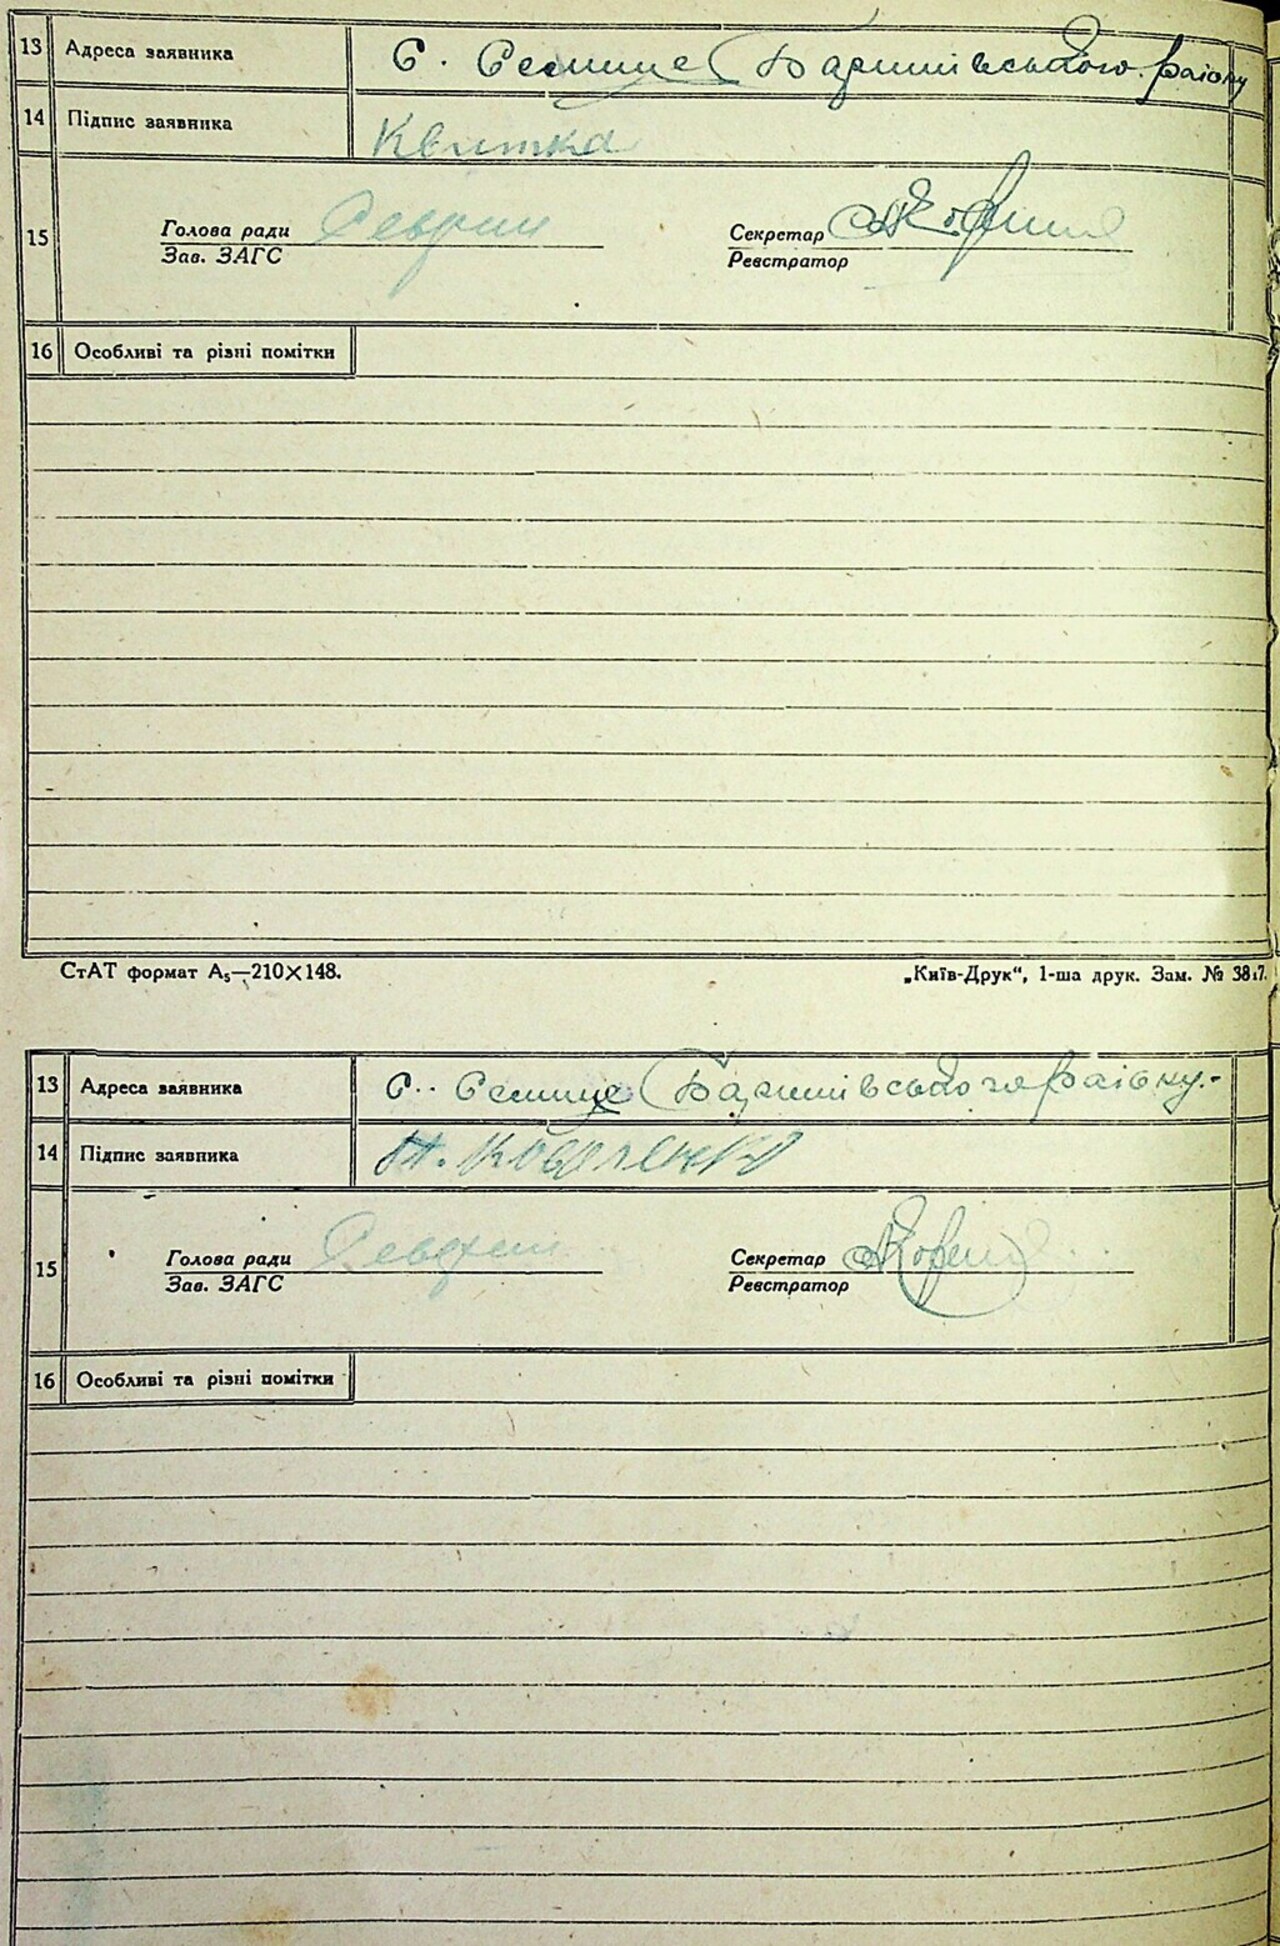 13 Адреса заявника С. Селище Баришівського району
14 Підпис заявника Квитка
15 Голова ради Секретар
Зав. ЗАГС Реєстратор
16 Особливі та різні помітки
СтАТ формат А₅—210×148. „Київ-Друк“, 1-ша друк. Зам. №
13 Адреса заявника С. Селище Баришівського району.-
14 Підпис заявника Н. Коваленко
15 Голова ради Секретар
Зав. ЗАГС Реєстратор
16 Особливі та різні помітки